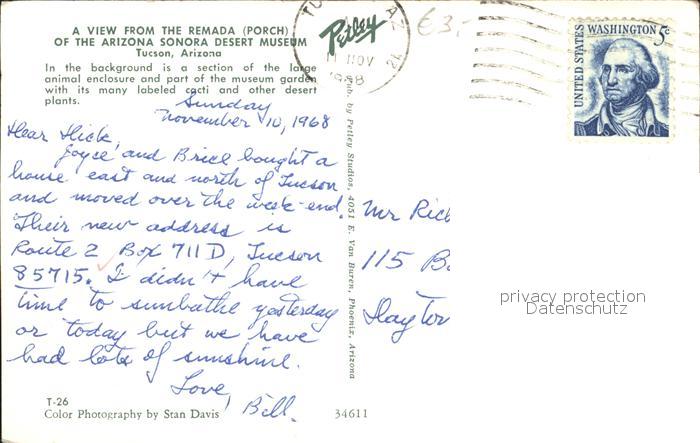 A VIEW FROM THE REMADA (PORCH)
OF THE ARIZONA SONORA DESERT MUSEUM
Tucson, Arizona
In the background is a section of the large
animal enclosure and part of the museum garden
with its many labeled cacti and other desert
plants.
Sunday
November 10, 1968
Dear Dick,
Joyce and Brice bought a
house east and north of Tucson
and moved over the week-end.
Their new address is
Route 2 Box 711D, Tucson
85715. I didn't have
time to sunbathe yesterday
or today but we have
had lots of sunshine.
Love,
Bill.
T-26
Color Photography by Stan Davis
34611
Petley
Pub. by Petley Studios, 4051 E. Van Buren, Phoenix, Arizona
TU AZ
11 NOV
1968
€3,-
UNITED STATES
WASHINGTON 5c
Mr Rich
115 B
Dayton
privacy protection
Datenschutz